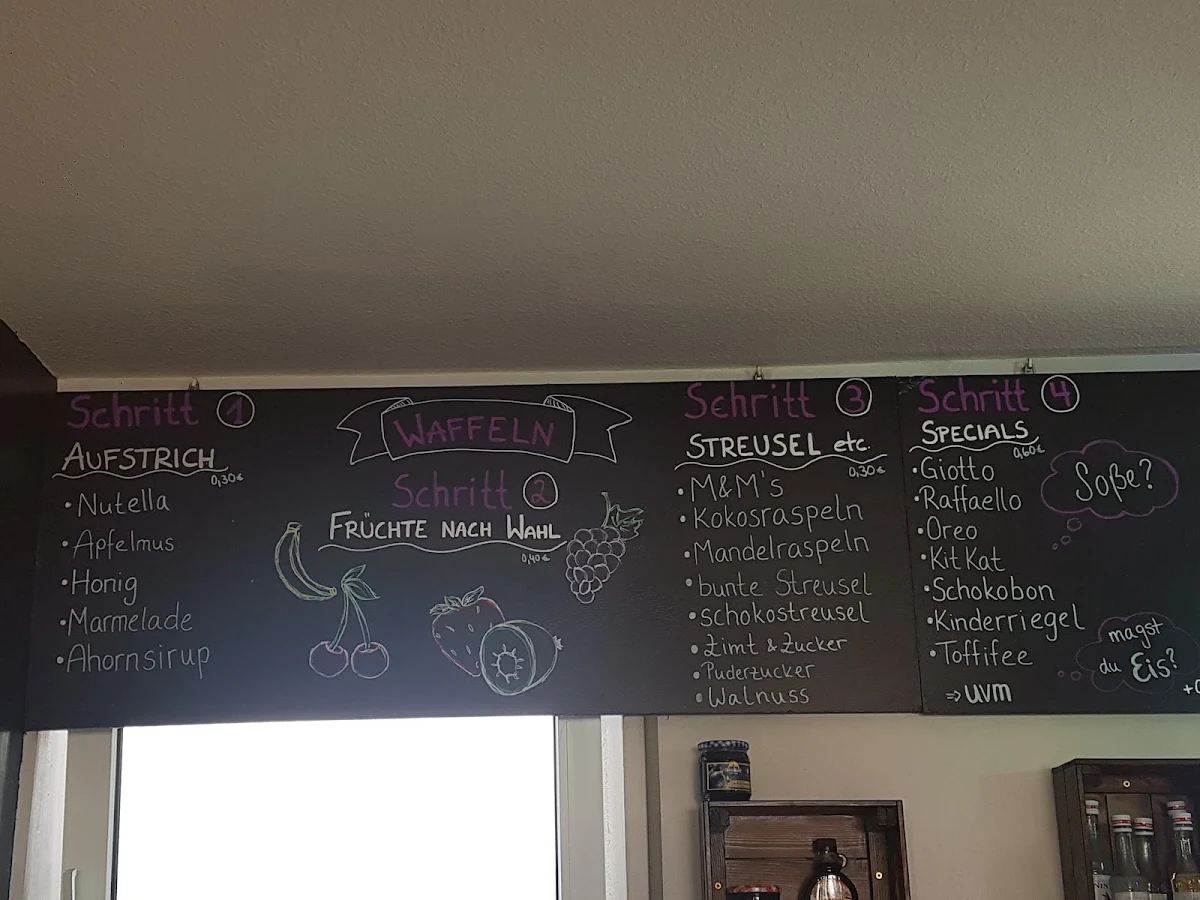 Schritt 1
AUFSTRICH
0,30€
• Nutella
• Apfelmus
• Honig
• Marmelade
• Ahornsirup
WAFFELN
Schritt 2
FRÜCHTE NACH WAHL
0,40€
Schritt 3
STREUSEL etc.
0,30€
• M&M's
• Kokosraspeln
• Mandelraspeln
• bunte Streusel
• schokostreusel
• Zimt & Zucker
• Puderzucker
• Walnuss
Schritt 4
SPECIALS
0,60€
• Giotto
• Raffaello
• Oreo
• KitKat
• Schokobon
• Kinderriegel
• Toffifee
⇒ uvm
Soße?
magst
du Eis?